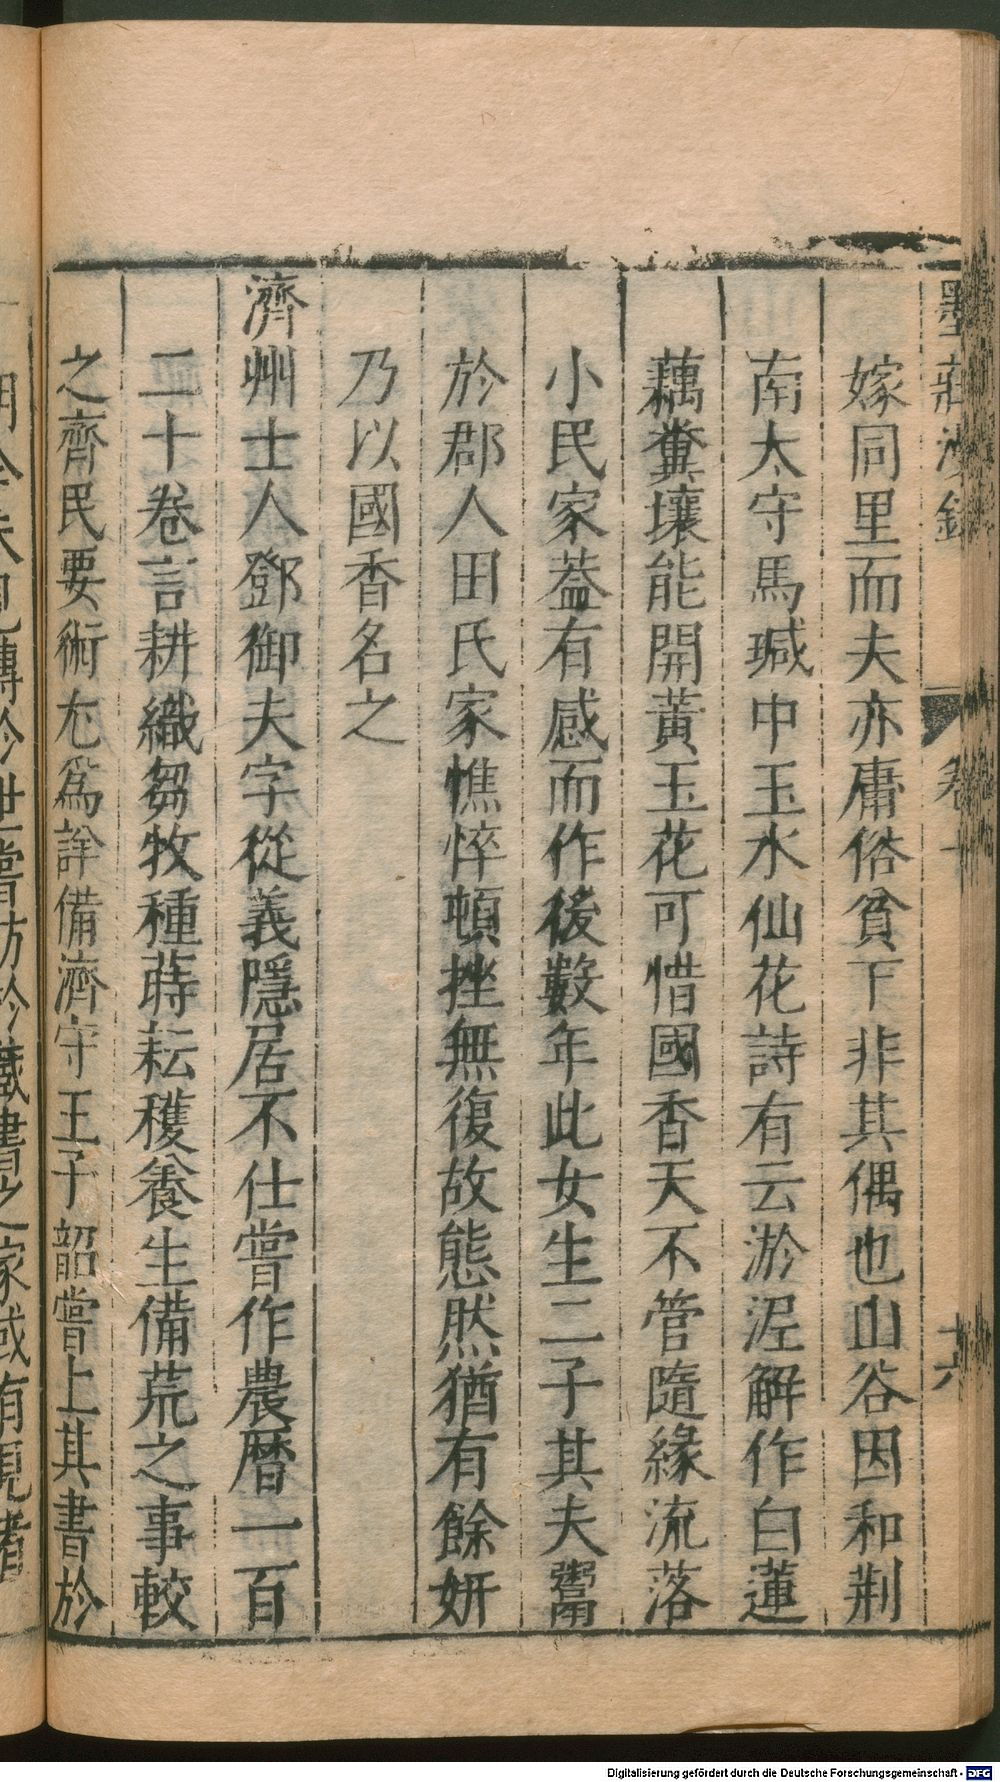 墨莊漫錄 卷一 十六
嫁同里而夫亦庸俗貧下非其偶也山谷因和荆
南太守馬瑊中玉水仙花詩有云淤泥解作白蓮
藕糞壤能開黃玉花可惜國香天不管隨緣流落
小民家葢有感而作後數年此女生二子其夫鬻
於郡人田氏家憔悴頓挫無復故態然猶有餘妍
乃以國香名之
濟州士人鄧御夫字從義隱居不仕嘗作農曆一百
二十卷言耕織芻牧種蒔耘穫養生備荒之事較
之齊民要術尤爲詳備濟守王子韶嘗上其書於
Digitalisierung gefördert durch die Deutsche Forschungsgemeinschaft - DFG